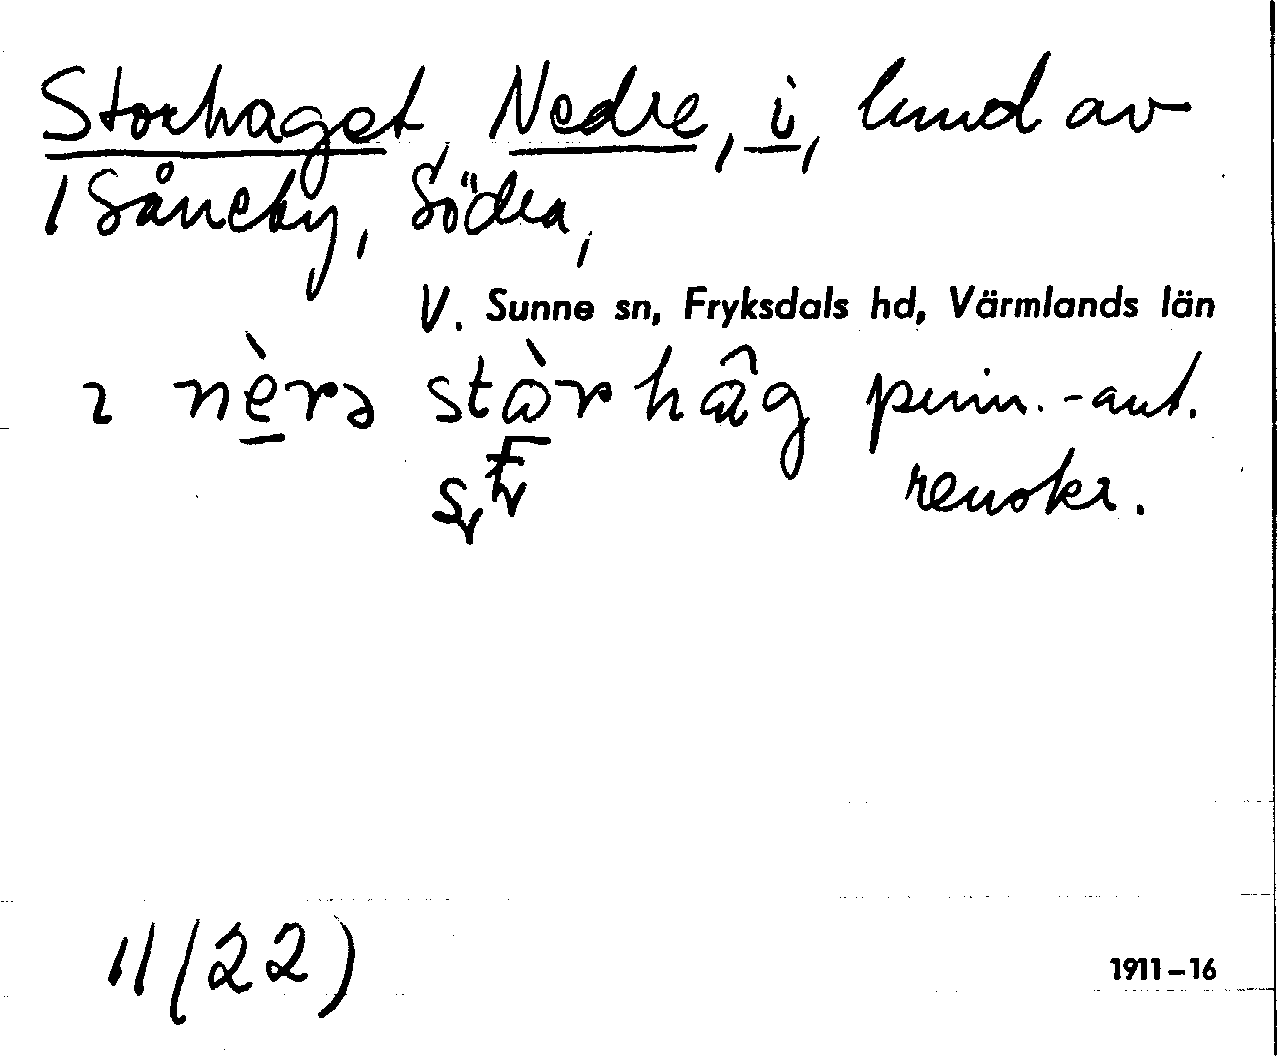 Storhaget, Nedre, i, lund av
/ Såneby, Södra,
V. Sunne sn, Fryksdals hd, Värmlands län
ı nè̱rə stɑ̀r hɑ̂g
renskr.
11 (22)
1911–16